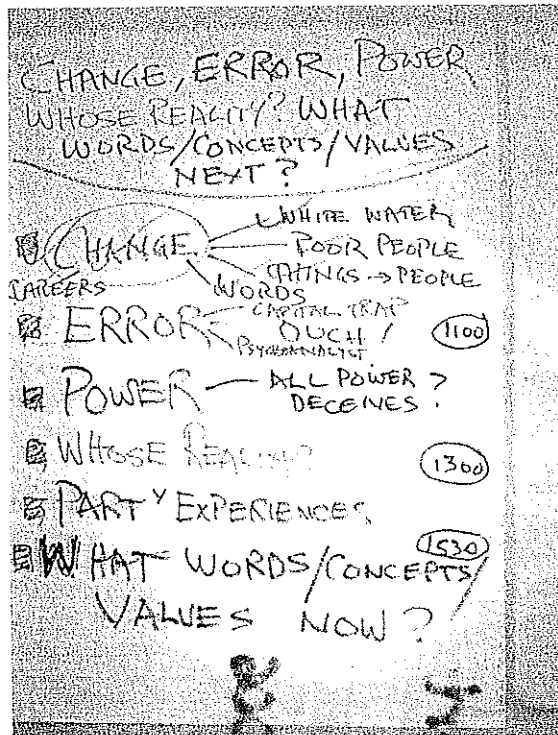 CHANGE, ERROR, POWER
WHOSE REALITY? WHAT
WORDS/CONCEPTS/VALUES
NEXT?
CHANGE
WHITE WATER
POOR PEOPLE
THINGS → PEOPLE
WORDS
CAREERS
ERROR
CAPITAL TRAP
OUCH!
PSYCHOANALYST
1100
POWER — ALL POWER
DECEIVES?
WHOSE REALITY?
1300
PARTY EXPERIENCES
1530
WHAT WORDS/CONCEPTS/
VALUES NOW?